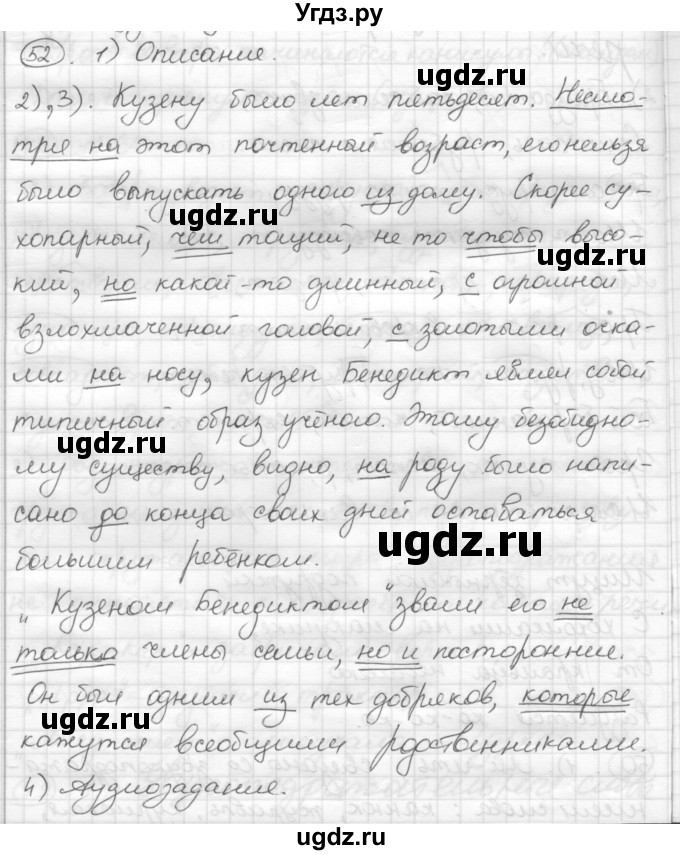 Угдз.ру
52. 1) Описание.
2), 3). Кузену было лет пятьдесят. Несмо-
тря на этот почтенный возраст, его нельзя
было выпускать одного из дому. Скорее су-
ugdz.ru
хопарный, чем тощий, не то чтобы высо-
ugdz.ru
кий, но какой-то длинный, с огромной
взлохмаченной головой, с золотыми очка-
ми на носу, кузен Бенедикт являл собой
типичный образ учёного. Этому безобидно-
ugdz.ru
му существу, видно, на роду было напи-
сано до конца своих дней оставаться
ugdz.ru
большим ребёнком.
„Кузеном Бенедиктом" звали его не
только члены семьи, но и посторонние.
Он был одним из тех добряков, которые
ugdz.ru
ugdz.ru
кажутся всеобщими родственниками.
4) Аудиозадание.
ugdz.ru